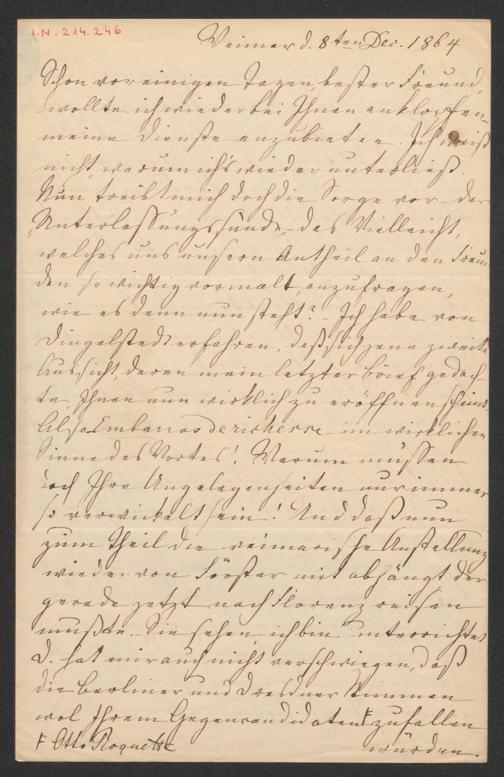 I.N. 214.246
Weimar d. 8ten Dec. 1864
Schon vor einigen Tagen, bester Freund,
wollte ich wieder bei Ihnen anklopfen
meine Dienste anzubieten. Ich weiß
nicht, warum ich's wieder unterließ.
Nun treibt mich doch die Sorge vor der
Unterlassungssünde, das Vielleicht,
welches uns unsern Antheil an den Freun
den so wichtig vormalt, anzufragen,
wie es denn nun steht? – Ich habe von
Dingelstedt erfahren, daß sich jene zweite
Aussicht, deren mein letzter Brief gedach-
te, Ihnen nun wirklich zu eröffnen scheint.
Also Embarras de richesse im wirklichen
Sinne des Wortes! Warum müssen
doch Ihre Angelegenheiten nur immer
so verwickelt sein! Und daß nun
zum Theil die weimarische Anstellung
wieder von Förster mit abhängt, der
gerade jetzt nach Florenz reisen
mußte. Sie sehen, ich bin unterrichtet.
D. hat mir auch nicht verschwiegen, daß
die Berliner und Dresdner Stimmen
wol Ihrem Gegencandidaten F zufallen
würden.
F Otto Roquette